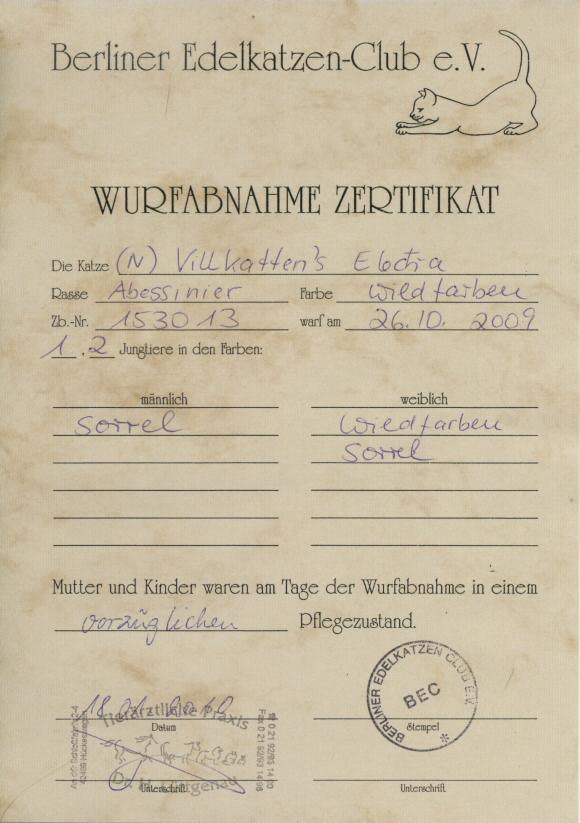 Berliner Edelkatzen-Club e.V.
WURFABNAHME ZERTIFIKAT
Die Katze (N) Villkatten's Electra
Rasse Abessinier Farbe wildfarben
Zb.-Nr. 153013 warf am 26.10. 2009
1 , 2 Jungtiere in den Farben:
männlich weiblich
Sorrel Wildfarben
Sorrel
Mutter und Kinder waren am Tage der Wurfabnahme in einem
vorzüglichen Pflegezustand.
BERLINER EDELKATZEN CLUB E.V.
BEC
18. 2010
Tierärztliche Praxis
Datum Stempel
Dr.
Unterschrift Unterschrift